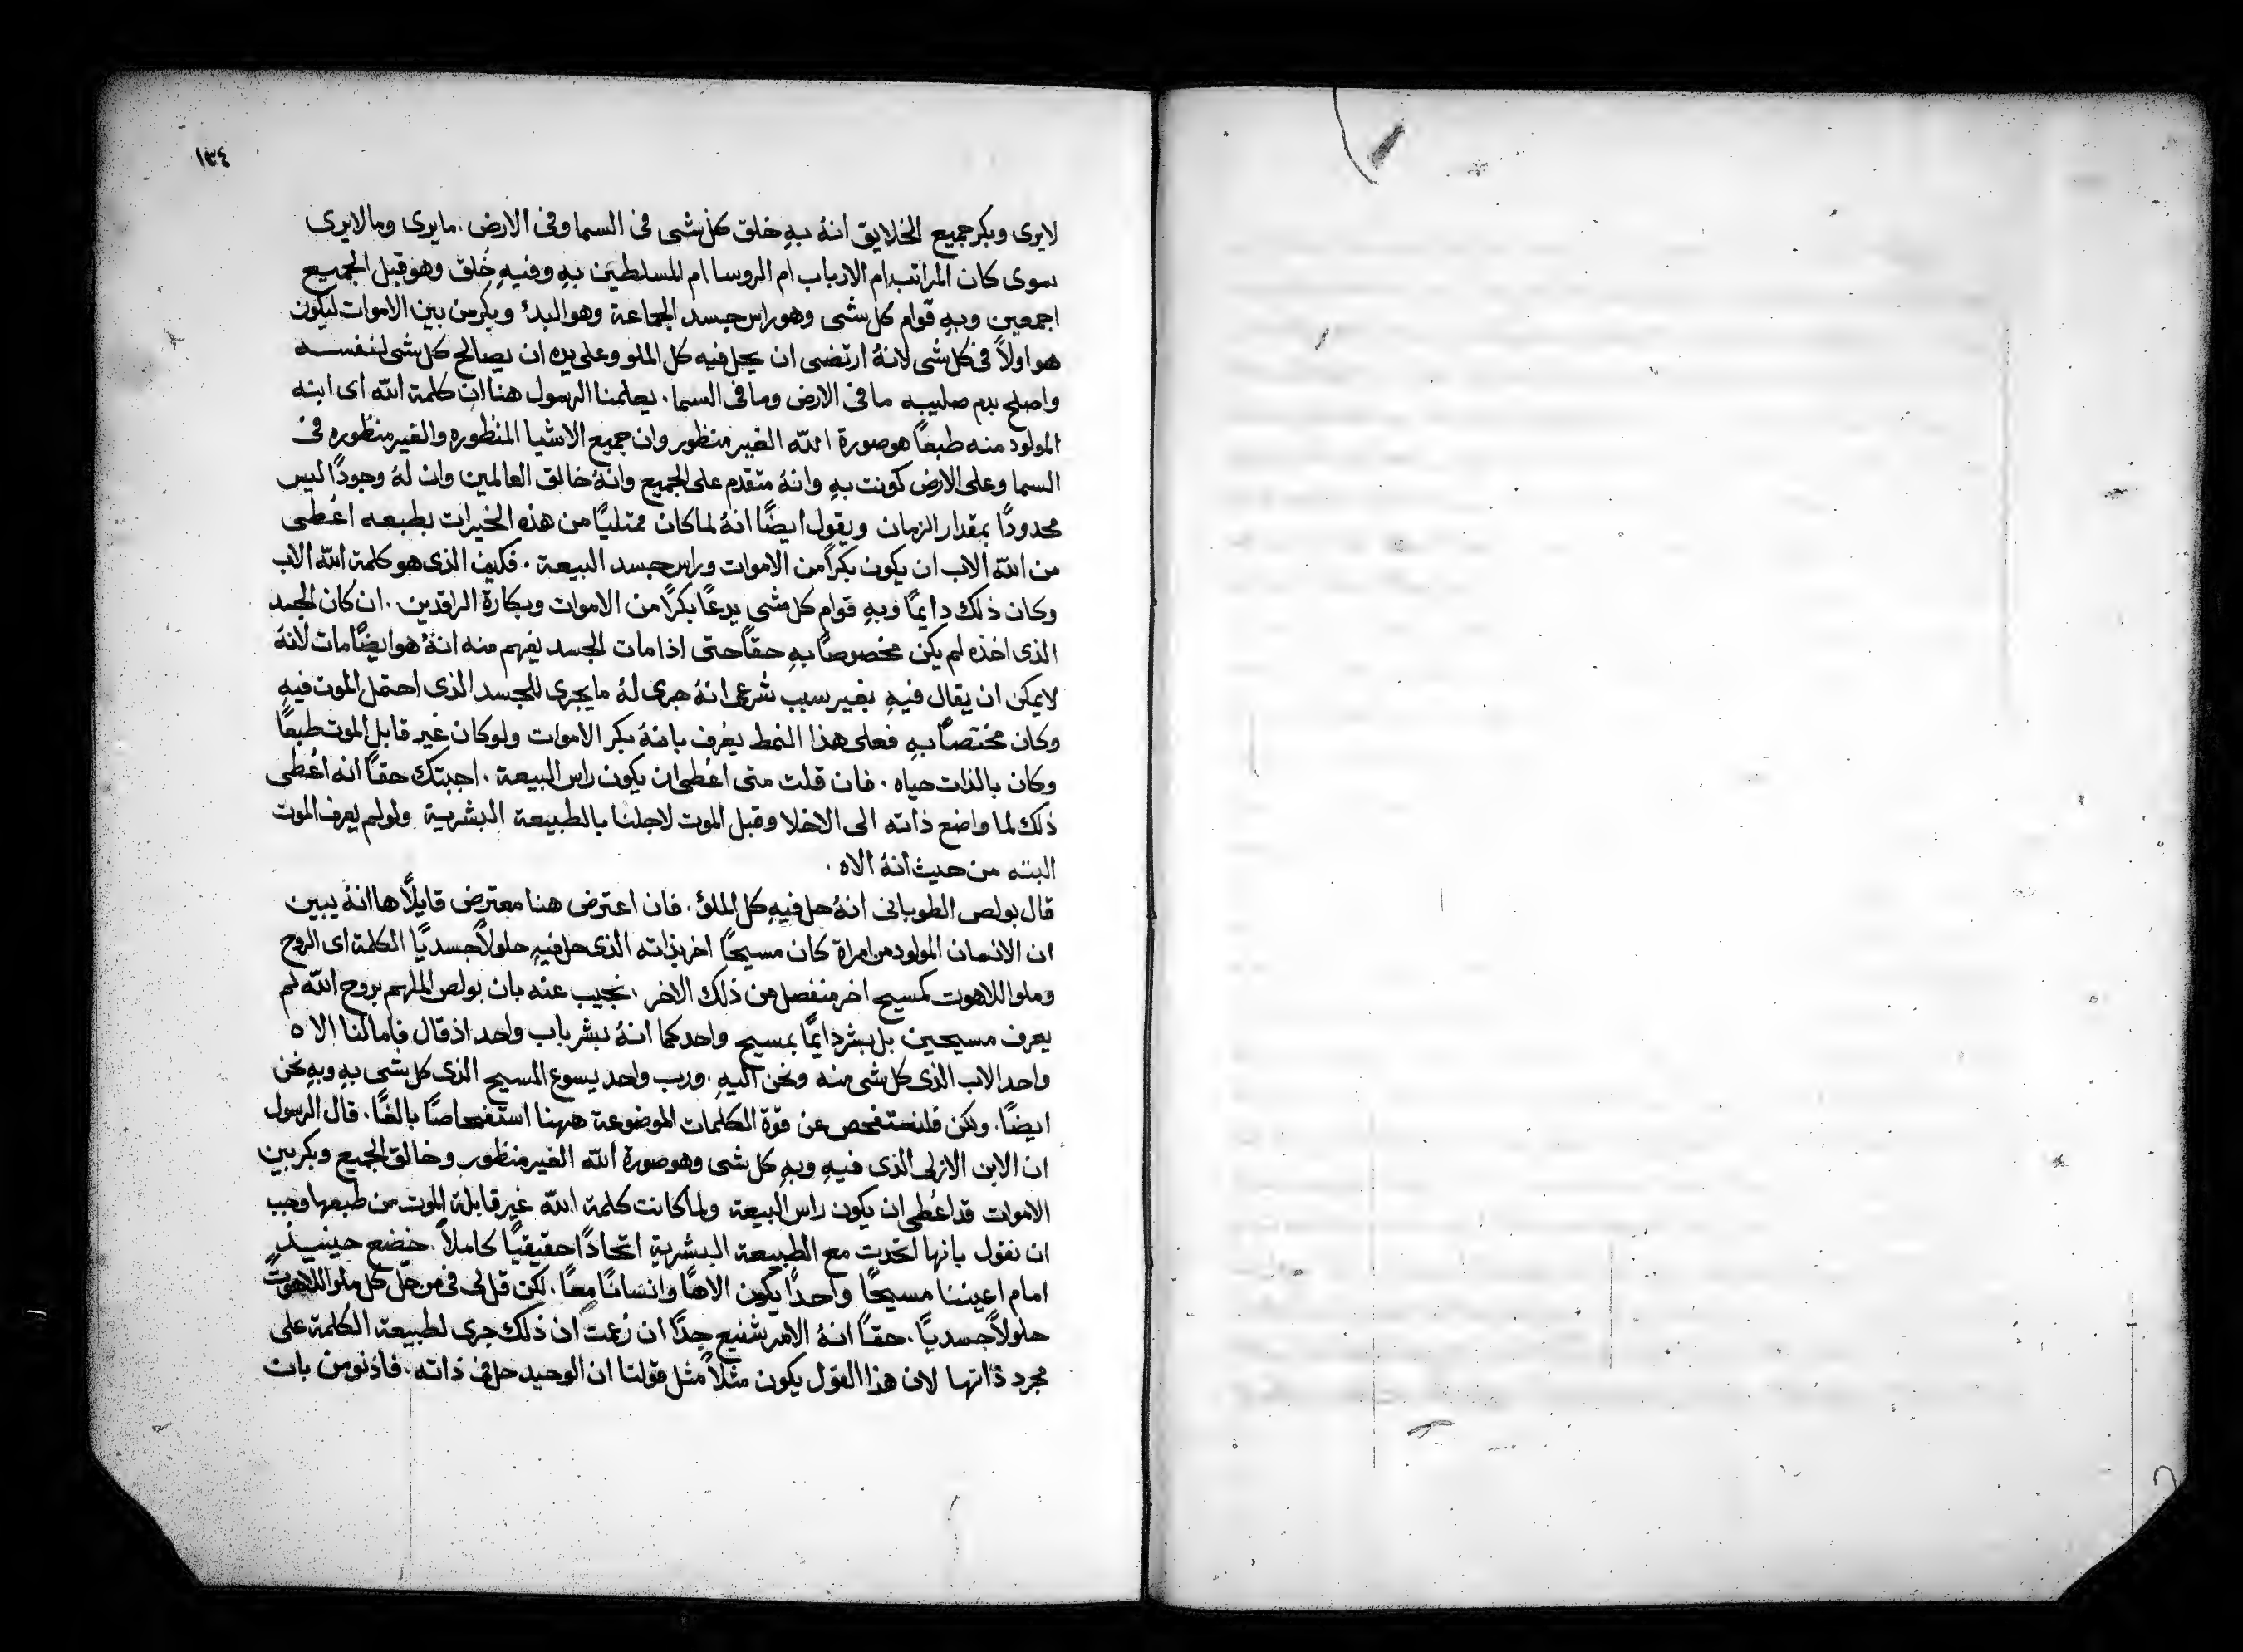 ١٣٤
لايرى وبكر جميع الخلايق انهُ بهِ خلق كل شى فى السما وفى الارض. مايرى ومالايرى
سوى كان المراتب ام الارباب ام الروسا ام المسلطين بهِ وفيهِ خُلق وهو قبل الجميع
اجمعين وبهِ قوام كل شى وهو راس جسد الجماعة وهو البدؤ وبكر من بين الاموات ليكون
هو اولاً فى كل شى لانهُ ارتضى ان يحل فيه كل الملو وعلى يده ان يصالح كل شى لنفسه
واصلح بدم صليبه ما فى الارض وما فى السما. يعلمنا الرسول هنا ان كلمة الله اى ابنه
المولود منه طبعاً هو صورة الله الغير منظور وان جميع الاشيا المنظوره والغير منظوره فى
السما وعلى الارض كونت بهِ وانهُ متقدم على الجميع وانهُ خالق العالمين وان لهُ وجودًا ليس
محدودًا بمقدار الزمان ويقول ايضًا انهُ لما كان ممتليًا من هذه الخيرات بطبعه اعُطى
من الله الاب ان يكون بكرًا من الاموات وراس جسد البيعة. فكيف الذى هو كلمة الله الاب
وكان ذلك دايمًا وبهِ قوام كل شى يدعًا بكرًا من الاموات وبكارة الراقدين. ان كان الجسد
الذى اخذه لم يكن مخصوصاً بهِ حقاً حتى اذا مات الجسد يفهم منه انهُ هو ايضًا مات لانهُ
لايمكن ان يقال فيهِ بغير سبب شرعى انهُ جرى لهُ مايجرى للجسد الذى احتمل الموت فيهِ
وكان مختصاً بهِ فعلى هذا النمط يعُرف بانهُ بكر الاموات ولو كان غير قابل الموت طبعًا
وكان بالذات حياه. فان قلت متى اعُطى ان يكون راس البيعة. اجبتك حقاً انه اعُطى
ذلك لما واضع ذاته الى الاخلا وقبل الموت لاجلنا بالطبيعة البشرية ولو لم يعرف الموت
البته من حيث انهُ الاه.
قال بولص الطوبانى انهُ حل فيهِ كل الملؤ. فان اعترض هنا معترض قايلاً ها انهُ يبين
ان الانسان المولود من امراة كان مسيحًا اخر بذاته الذى حل فيهِ حلولاً جسديًا الكلمة اى الروح
وملو اللاهوت كمسيح اخر منفصل من ذلك الاخر. نجيب عنه بان بولص الملهم بروح الله لم
يعرف مسيحين بل بشر دايمًا بمسيح واحد كما انهُ بشر باب واحد اذ قال فاما لنا الاه
واحد الاب الذى كل شى منه ونحن اليهِ. ورب واحد يسوع المسيح الذى كل شى بهِ وبهِ نحن
ايضًا. ولكن فلنستفحص عن قوة الكلمات الموضوعة ههنا استفحاصاً بالغًا. قال الرسول
ان الابن الازلى الذى فيهِ وبهِ كل شى وهو صورة الله الغير منظور وخالق الجميع وبكر بين
الاموات قد اعُطى ان يكون راس البيعة ولما كانت كلمة الله غير قابلة الموت من طبعها وجب
ان نقول بانها اتحدت مع الطبيعة البشرية اتحادًا حقيقيًا كاملاً. خضع حينيذٍ
امام اعيننا مسيحًا واحدًا يكون الاهًا وانسانًا معًا. لكن قل لى فى من حل كل ملو اللاهوت
حلولاً جسديًا. حقاً انهُ الامر شنيع جدًا ان زعمت ان ذلك جرى لطبيعة الكلمة على
مجرد ذاتها لان هذا القول يكون مثلاً مثل قولنا ان الوحيد حل فى ذاته. فاذ نومن بان